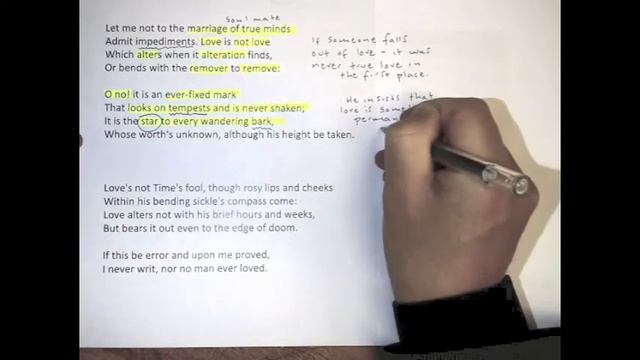 soul mate
Let me not to the marriage of true minds
Admit impediments. Love is not love
Which alters when it alteration finds,
Or bends with the remover to remove:
O no! it is an ever-fixed mark
That looks on tempests and is never shaken;
It is the star to every wandering bark,
Whose worth's unknown, although his height be taken.
Love's not Time's fool, though rosy lips and cheeks
Within his bending sickle's compass come:
Love alters not with his brief hours and weeks,
But bears it out even to the edge of doom.
If this be error and upon me proved,
I never writ, nor no man ever loved.
If someone falls
out of love – it was
never true love in
the first place.
He insists that
love is